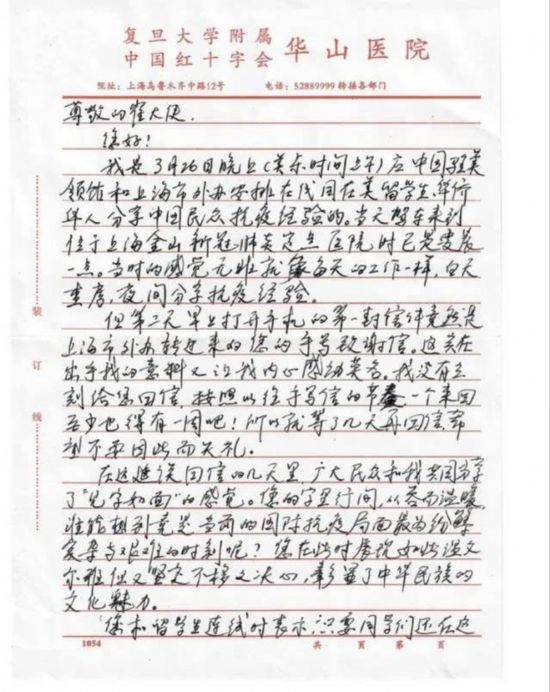 复旦大学附属
中国红十字会
华山医院
院址:上海乌鲁木齐中路12号
电话:52889999转接各部门
尊敬的崔大使,
您好!
我是3月26日晚上(美东时间上午)应中国驻美
领馆和上海市外办安排在线同在美留学生华侨
华人分享中国民众抗疫经验的。当天驾车来到
位于上海金山新冠肺炎定点医院时已是凌晨
一点。当时的感觉无非就像每天的工作一样,白天
查房,夜间分享抗疫经验。
但第二天早上打开手机的第一封信件竟然是
上海市外办转过来的您的手写致谢信。这实在
出乎我的意料又让我内心感动莫名。我没有立
刻给您回信,按照以往手写信的节奏一个来回
至少也得有一周吧!所以就等了几天再回信希
望不要因此而失礼。
在这延误回信的几天里,广大民众和我共同分享
了"见字如面"的感觉。您的字里行间,从容而温暖,
谁能想到竟是当前的国际抗疫局面最为纷繁
复杂与艰难的时刻呢?您在此时展现如此温文
尔雅但又坚定不移之决心,彰显了中华民族的
文化魅力。
您和留学生连线时表示,只要同学们还在这
装
订
线
1054
共 页 第 页